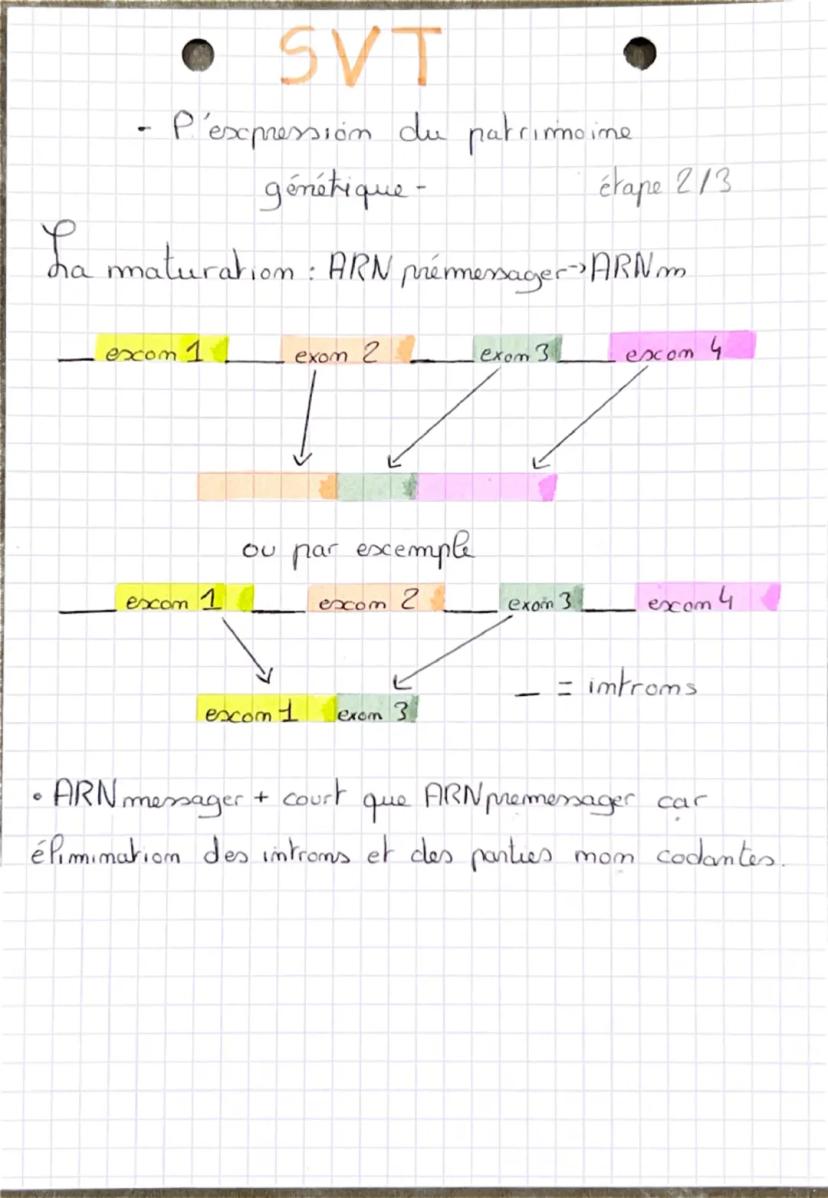 SVT
- l'expression du patrimoine
génétique -
étape 2/3
La maturation : ARN prémessager → ARNm
exon 1 exon 2 exon 3 exon 4
ou par exemple
exon 1 exon 2 exon 3 exon 4
_ = introns
exon 1 exon 3
• ARN messager + court que ARN premessager car
élimination des introns et des parties non codantes.